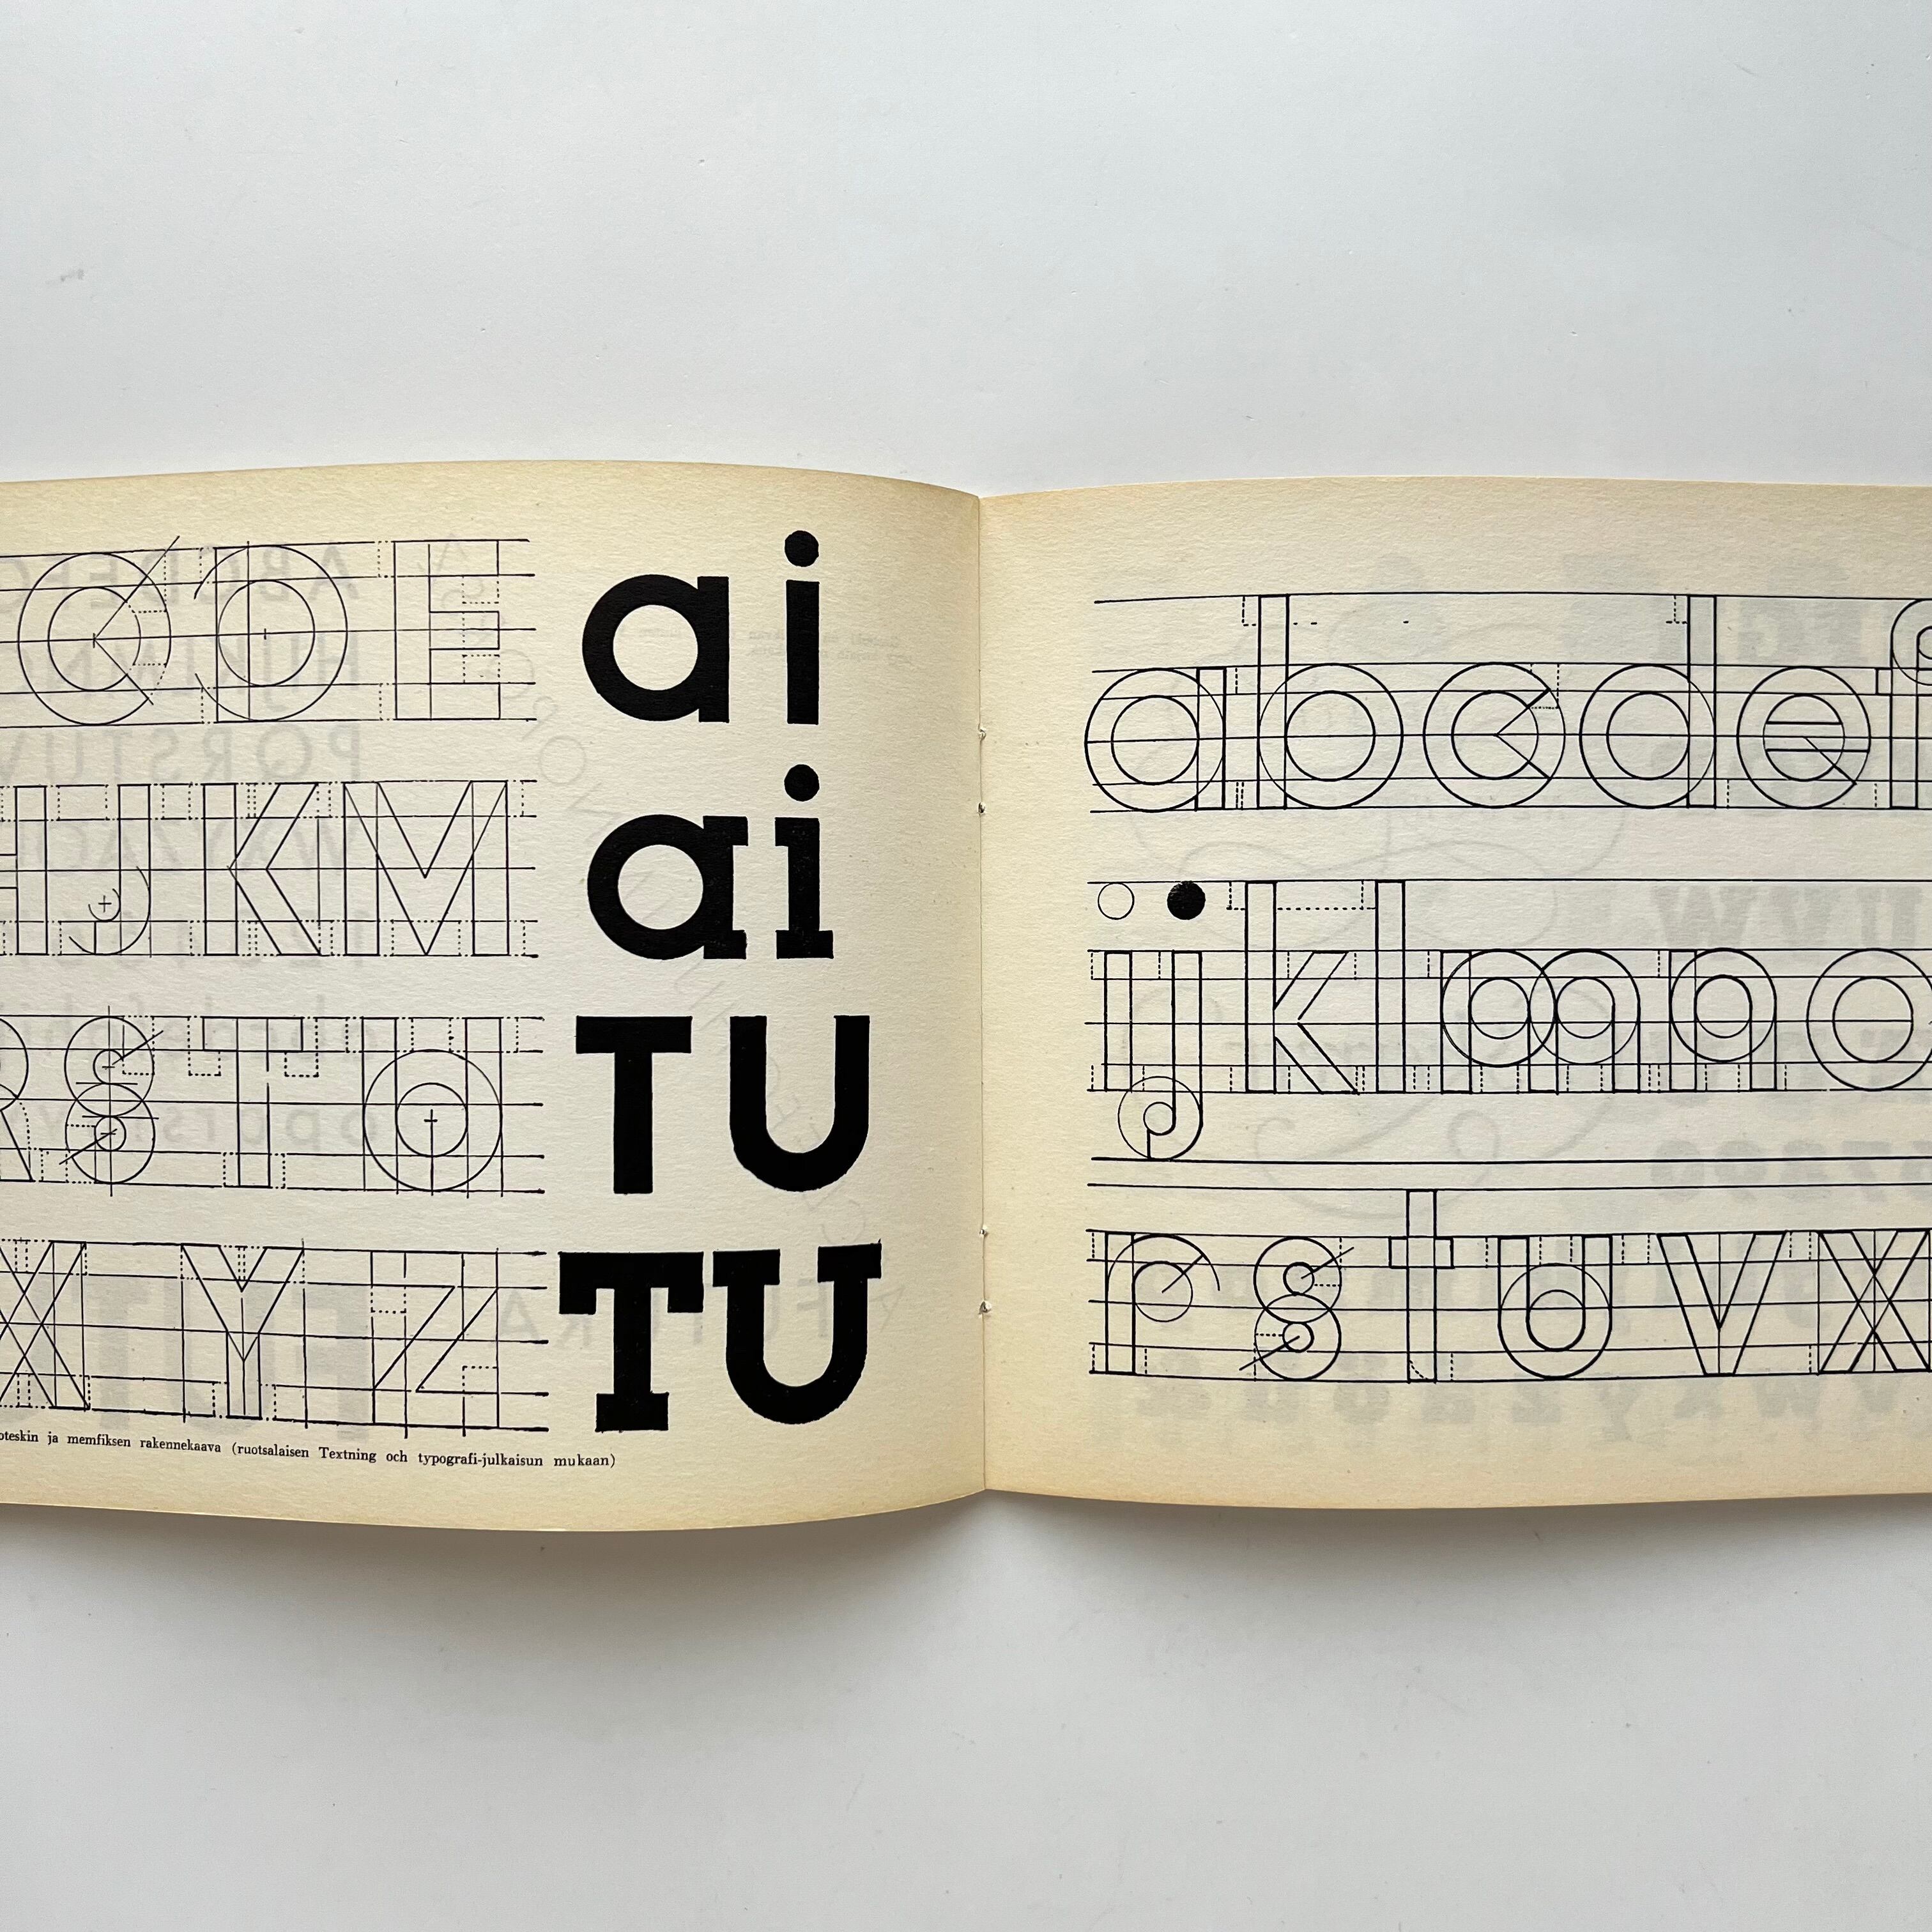 C D E
H J K M
R S T U
X Y Z
a i
a i
T U
T U
oteskin ja memfiksen rakennekaava (ruotsalaisen Textning och typografi-julkaisun mukaan)
a b c d e f
i j k l m n o
r s t u v x